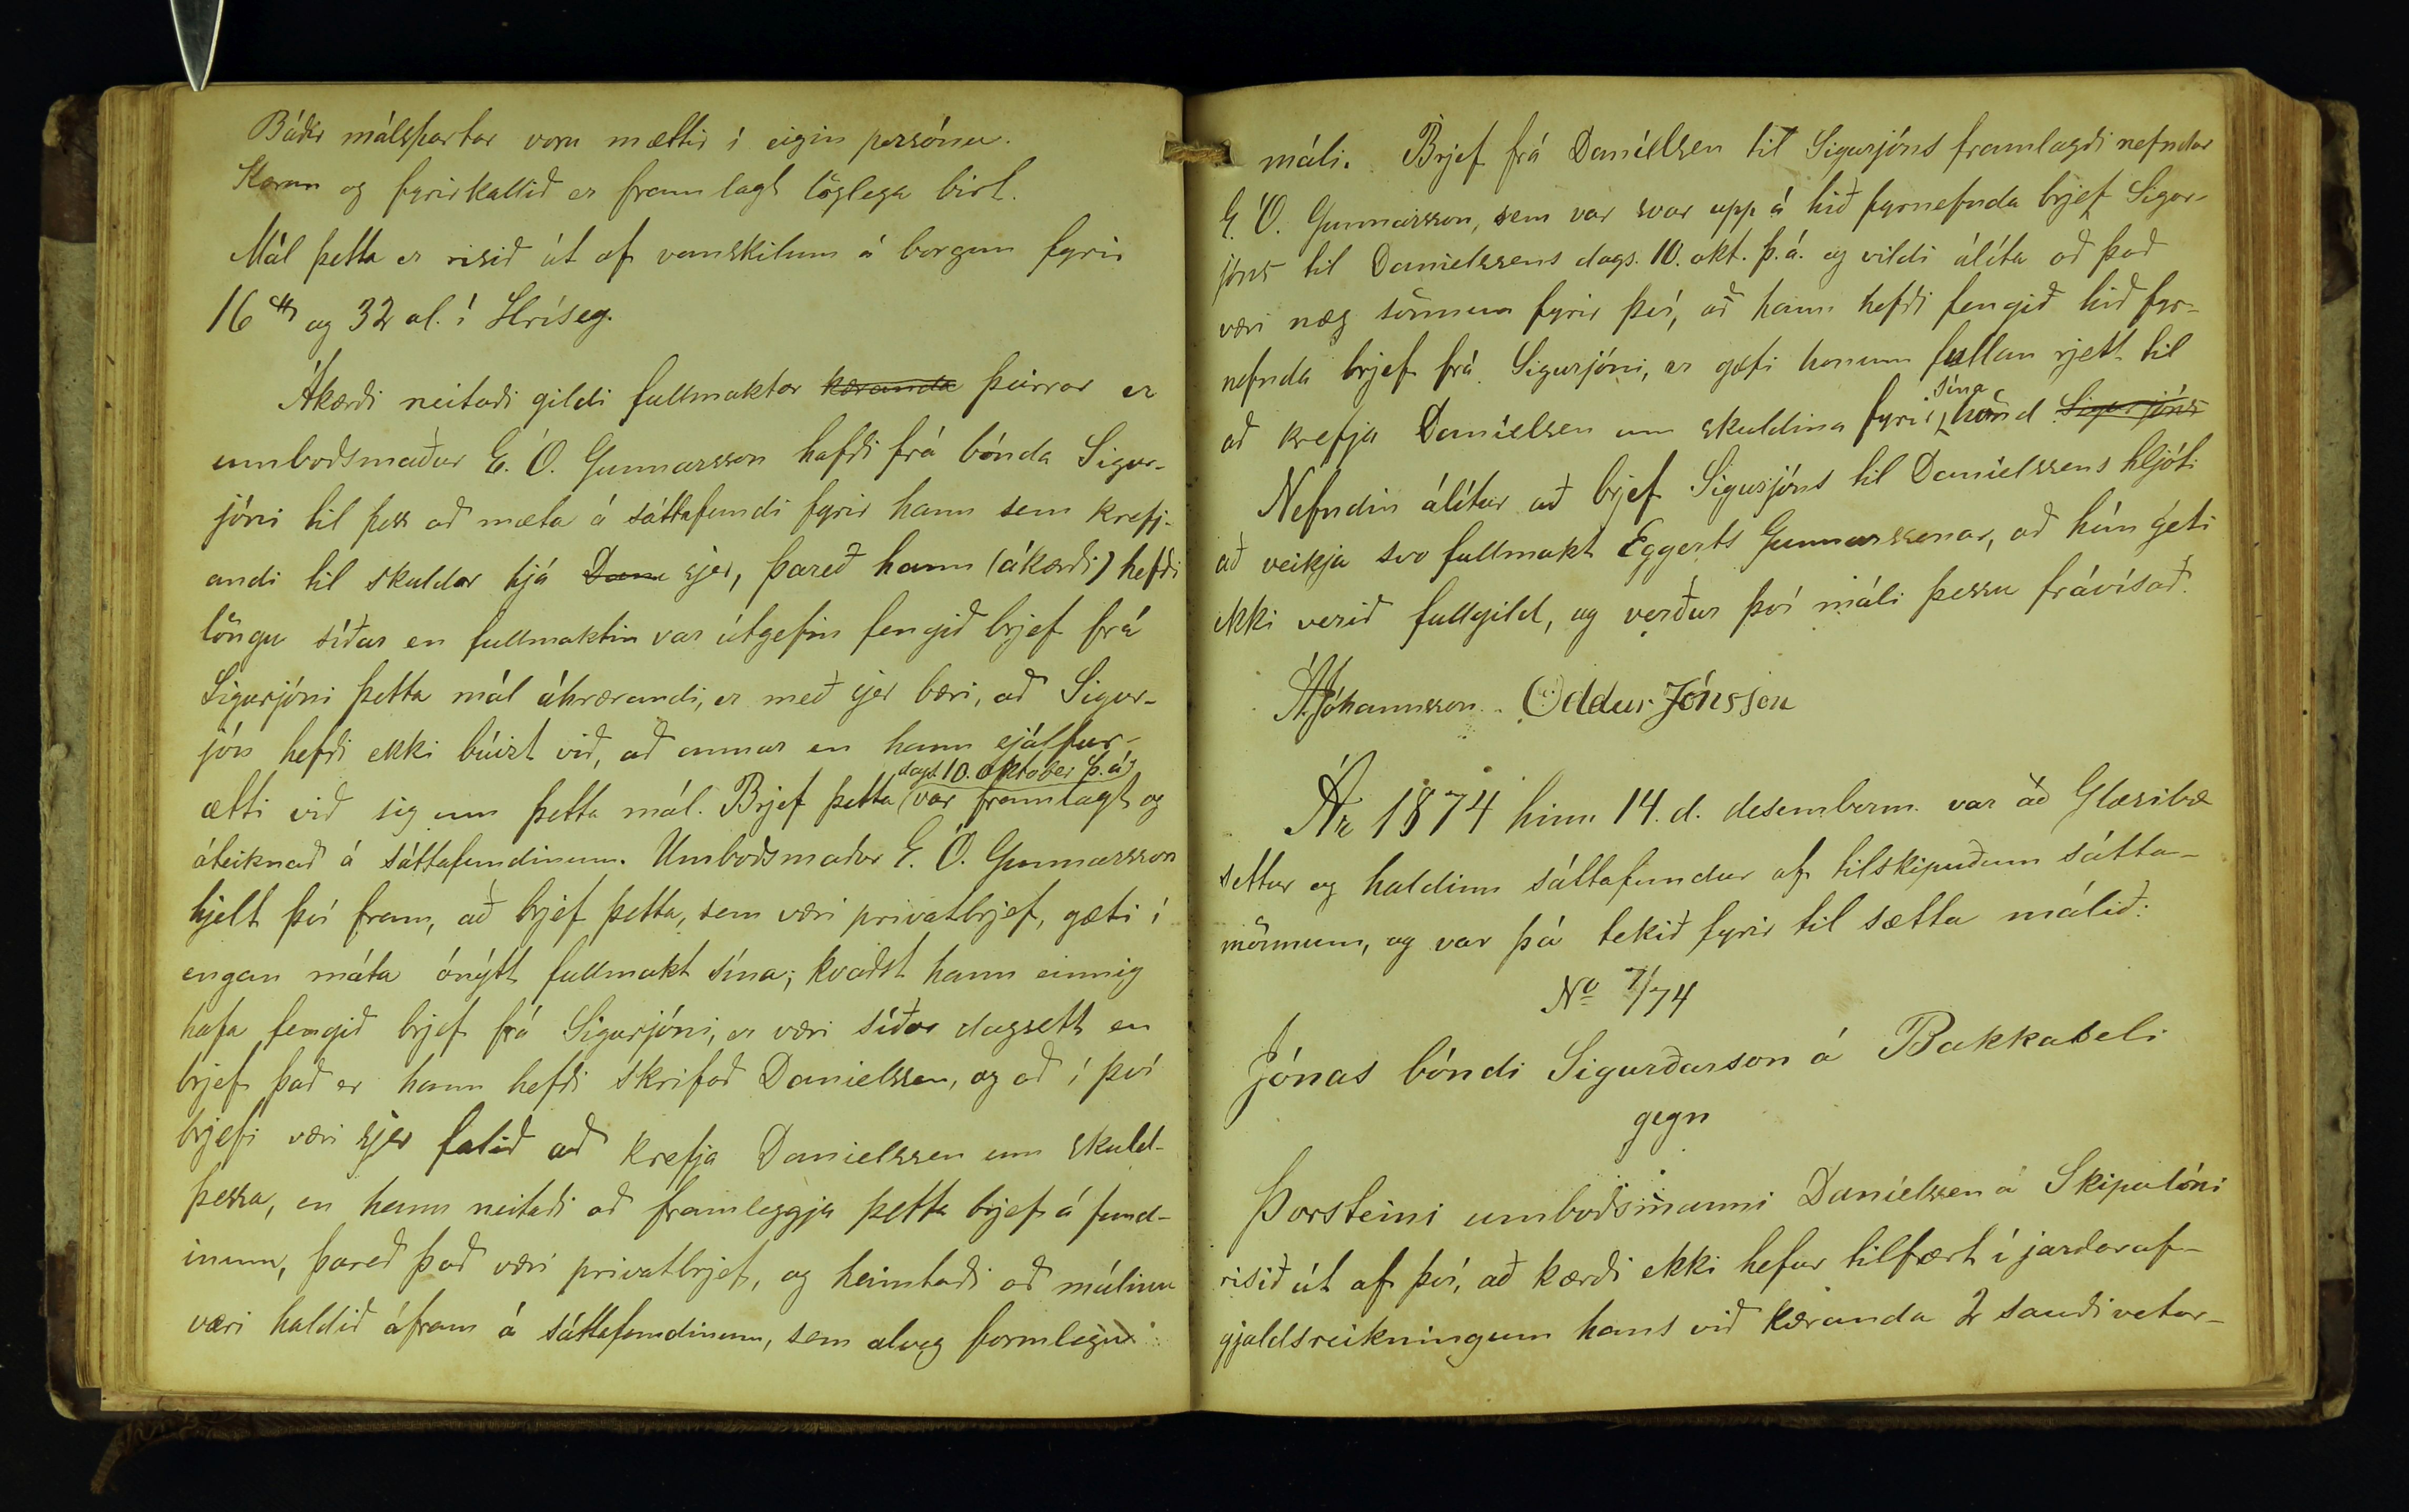 Báðir málspartar voru mættir í eigin persónu.
Kæran og fyrirkallið er framlagt löglega birt.
Mál þetta er risið út af vanskilum á borgun fyrir
16 og 32 al. í Hrísey.
Ákærði neitaði gildi fullmaktar kæranda þeirrar er
umboðsmaður E. Ó. Gunnarsson hafði frá bónda Sigur-
jóni til þess að mæta á sáttafundi fyrir hann sem krefj-
andi til skuldar hjá Dane sjer, þareð hann (ákærði) hefði
löngu síðar en fullmaktin var útgefin fengið brjef frá
Sigurjóni þetta mál áhrærandi, er með sjer bæri, að Sigur-
jón hefði ekki búizt við, að annar en hann sjálfur
dags. 10. oktober þ. á.
ætti við sig um þetta mál. Brjef þetta var framlagt og
áteiknað á sáttafundinum. Umboðsmaður E. Ó. Gunnarsson
hjelt því fram, að brjef þetta, sem væri privatbrjef, gæti í
engan máta ónýtt fullmakt sína; kvaðst hann einnig
hafa fengið brjef frá Sigurjóni, er væri síðar dagsett en
brjef það er hann hefði skrifað Danielssen, og að í því
brjefi væri sjer falið að krefja Danielssen um skuld-
þessa, en hann neitaði að framleggja þetta brjef á fund-
inum, þareð það væri privatbrjef, og heimtaði að málinu
væri haldið áfram á sáttafundinum, sem alveg formlegu
máli. Brjef frá Daníelssen til Sigurjóns framlagði nefndar
E. Ó. Gunnarsson, sem var svar upp á hið fyrnefnda brjef Sigur-
jóns til Danielssens dags. 10. okt. þ. á. og vildi álíta að það
væri næg sönnun fyrir því, að hann hefði fengið hið fyr-
nefnda brjef frá Sigurjóni, er gæfi honum fullan rjett til
sína
að krefja Daníelsen um skuldina fyrir hönd Sigurjóns
Nefndin álítur að brjef Sigurjóns til Daníelssens hljóti
að veikja svo fullmakt Eggerts Gunnarssonar, að hún geti
ekki verið fullgild, og verður því máli þessu frávísað.
Á. Jóhannsson. Oddur Jónsson
Ár 1874 hinn 14. d. desemberm. var að Glæsibæ
settur og haldinn sáttafundur af tilskipuðum sátta-
mönnum, og var þá tekið fyrir til sætta málið:
No 7/74
Jónas bóndi Sigurðarson á Bakkaseli
gegn
Þorsteini umboðsmanni Daníelssen á Skipalóni
risið út af því, að kærði ekki hefur tilfært í jarðaraf-
gjaldsreikningum hans við kæranda 2 sauði vetur-